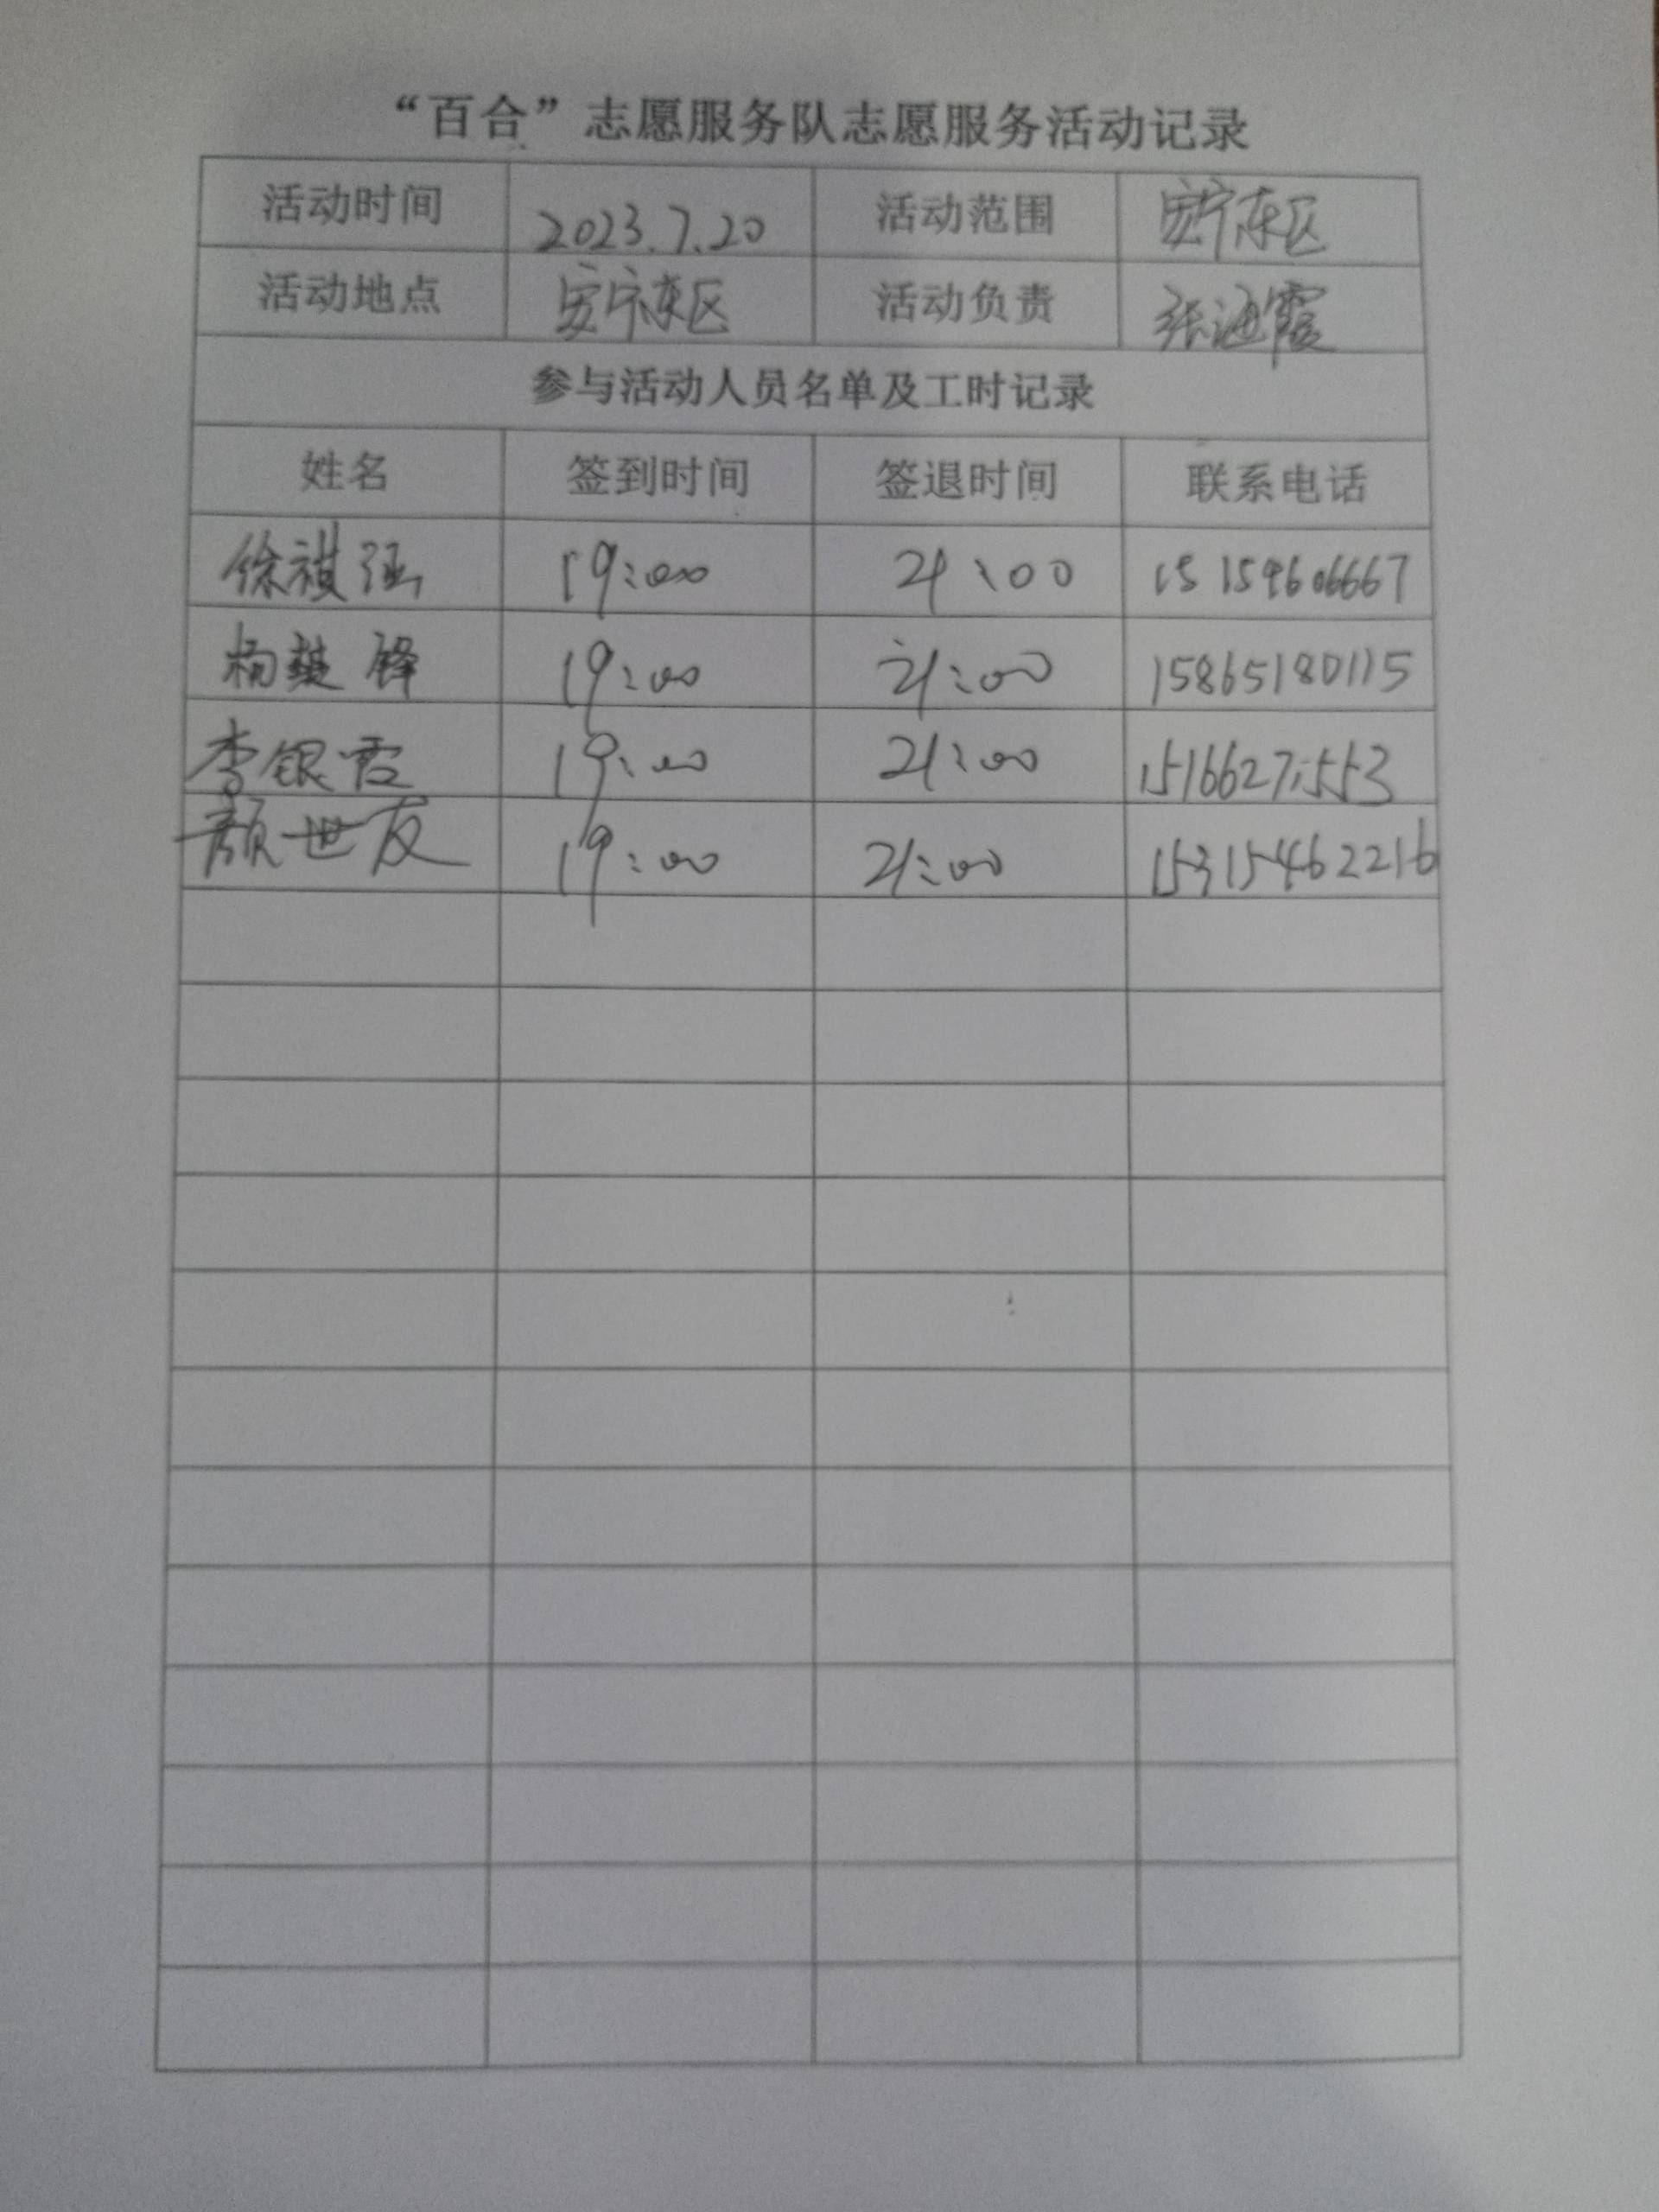 “百合”志愿服务队志愿服务活动记录
活动时间 2023.7.20 活动范围 安宁东区
活动地点 安宁东区 活动负责 张海霞
参与活动人员名单及工时记录
姓名 签到时间 签退时间 联系电话
徐祺涵 19:00 21:00 15159606667
杨楚铎 19:00 21:00 15865180115
李银霞 19:00 21:00 15166275553
颜世友 19:00 21:00 15315462216